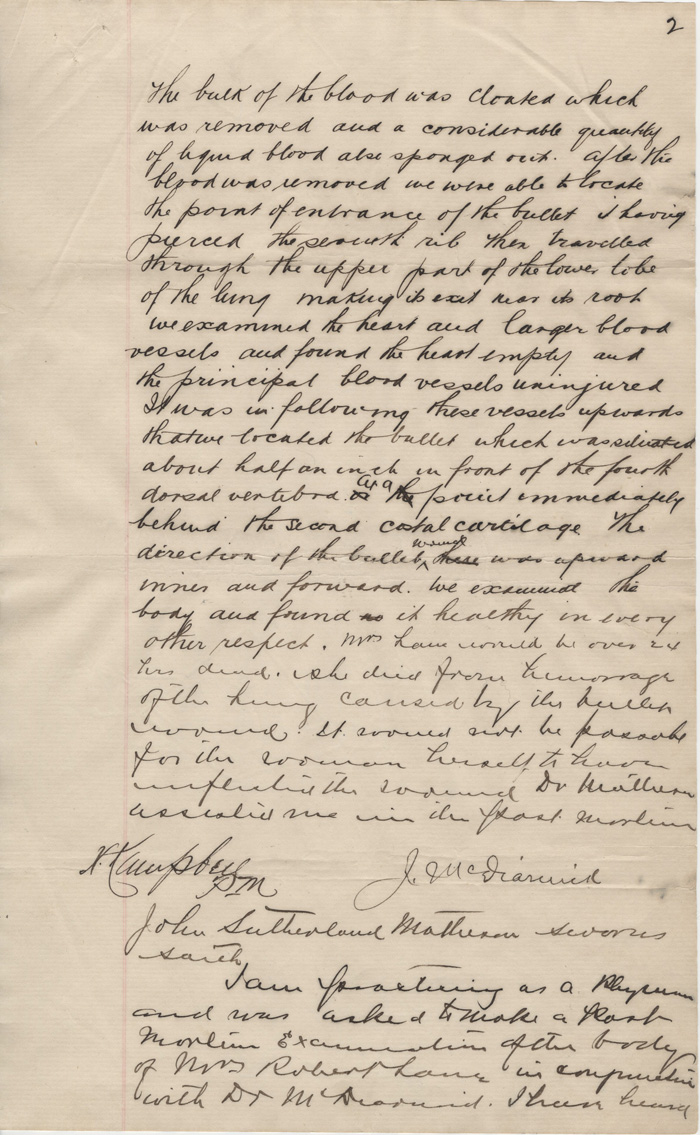 2
The bulk of the blood was cloated which
was removed and a considerable quantity
of liquid blood also sponged out. After the
blood was removed we were able to locate
the point of entrance of the bullet i having
pierced the seventh rib then travelled
through the upper part of the lower lobe
of the lung making its exit near its root
we examined the heart and larger blood
vessels and found the heart empty and
the principal blood vessels uninjured
It was in following these vessels upwards
that we located the bullet which was situated
about half an inch in front of the fourth
dorsal vertebra. at a point immediately
behind the second costal cartilage The
direction of the bullet wound was upward
inner and forward. We examined the
body and found it healthy in every
other respect. Mrs would be over 24
hrs dead. she died from hemorrage
of the lung caused by the bullet
wound. It would not be possable
for the woman herself to have
the wound Dr Matheson
assisted me in the Post Mortem
H. Campbell
PM
J. McDiarmid
John Sutherland Matheson sworn
saith
I am practicing as a
and was asked to make a Post
Mortem Examination of the body
of Mrs Robert in conjunction
with Dr McDiarmid. I have heard